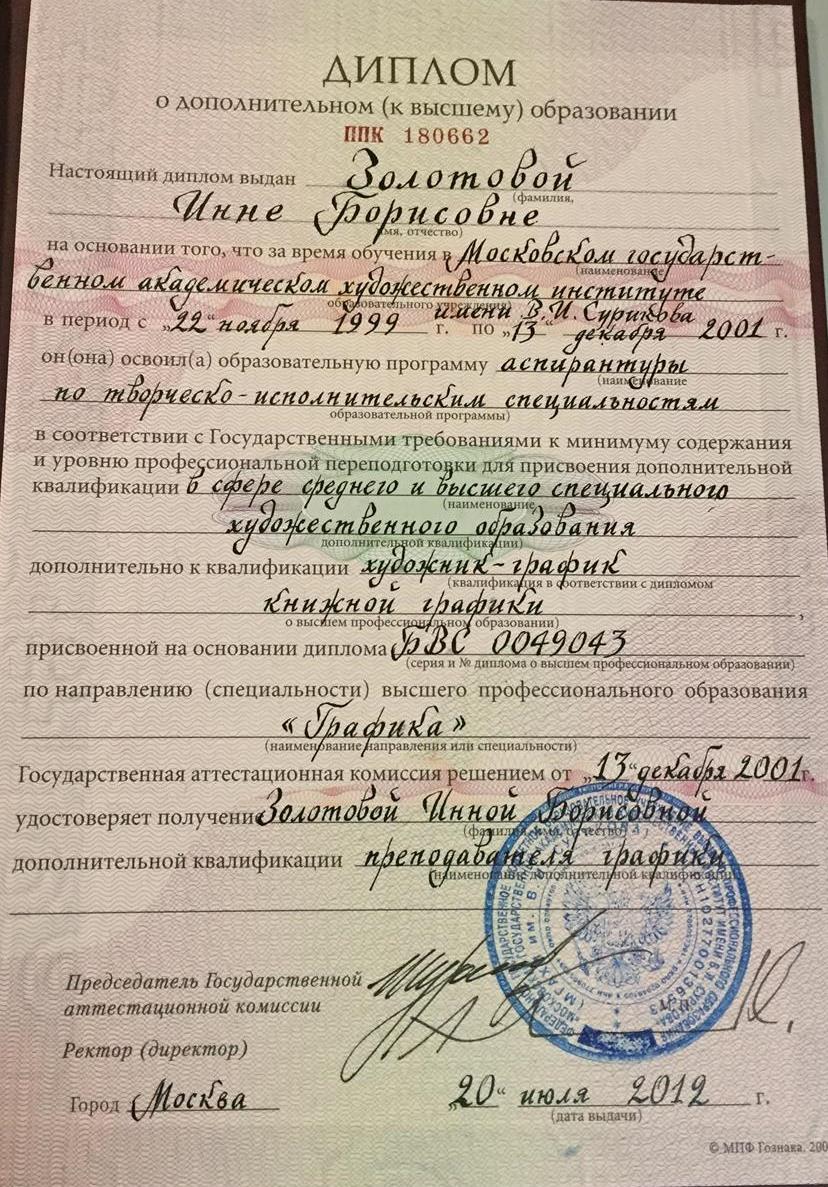 ДИПЛОМ
о дополнительном (к высшему) образовании
ППК 180662
Настоящий диплом выдан Золотовой
(фамилия,
Инне Борисовне
имя, отчество)
на основании того, что за время обучения в Московском государст-
(наименование
венном академическом художественном институте
образовательного учреждения)
имени В.И. Сурикова
в период с „22“ ноября 1999 г. по „13“ декабря 2001 г.
он(она) освоил(а) образовательную программу аспирантуры
(наименование
по творческо-исполнительским специальностям
образовательной программы)
в соответствии с Государственными требованиями к минимуму содержания
и уровню профессиональной переподготовки для присвоения дополнительной
квалификации в сфере среднего и высшего специального
(наименование
художественного образования
дополнительной квалификации)
дополнительно к квалификации художник-график
(квалификация в соответствии с дипломом
книжной графики ,
о высшем профессиональном образовании)
присвоенной на основании диплома БВС 0049043
(серия и № диплома о высшем профессиональном образовании)
по направлению (специальности) высшего профессионального образования
«Графика»
(наименование направления или специальности)
Государственная аттестационная комиссия решением от „13“ декабря 2001г.
удостоверяет получение Золотовой Инной Борисовной
(фамилия, имя, отчество)
дополнительной квалификации преподавателя графики
(наименование дополнительной квалификации)
Председатель Государственной
аттестационной комиссии
Ректор (директор)
Город Москва „20“ июля 2012 г.
(дата выдачи)
© МПФ Гознака. 200